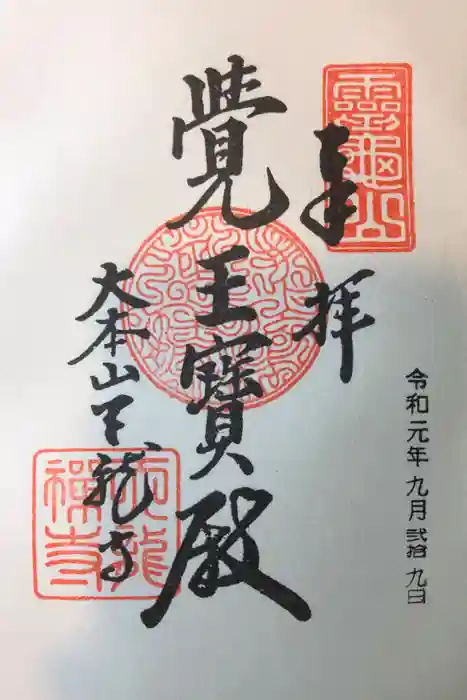 靈龜山
奉拝
令和元年 九月 弐拾 九日
覺王寶殿
大本山天龍寺
天龍
禪寺